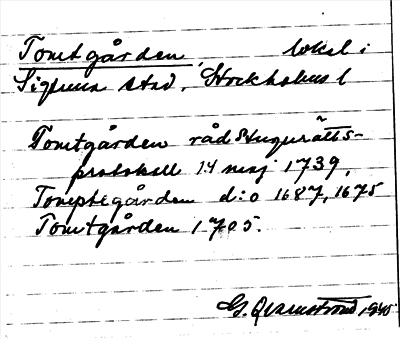 Tomtgården, lokal i
Sigtuna stad, Stockholms l
Tomtgården rådstugurätts-
protokoll 14 maj 1739,
Tomptegården d:o 1687, 1675
Tomtgården 1705.
G. Qvarnström, 1945